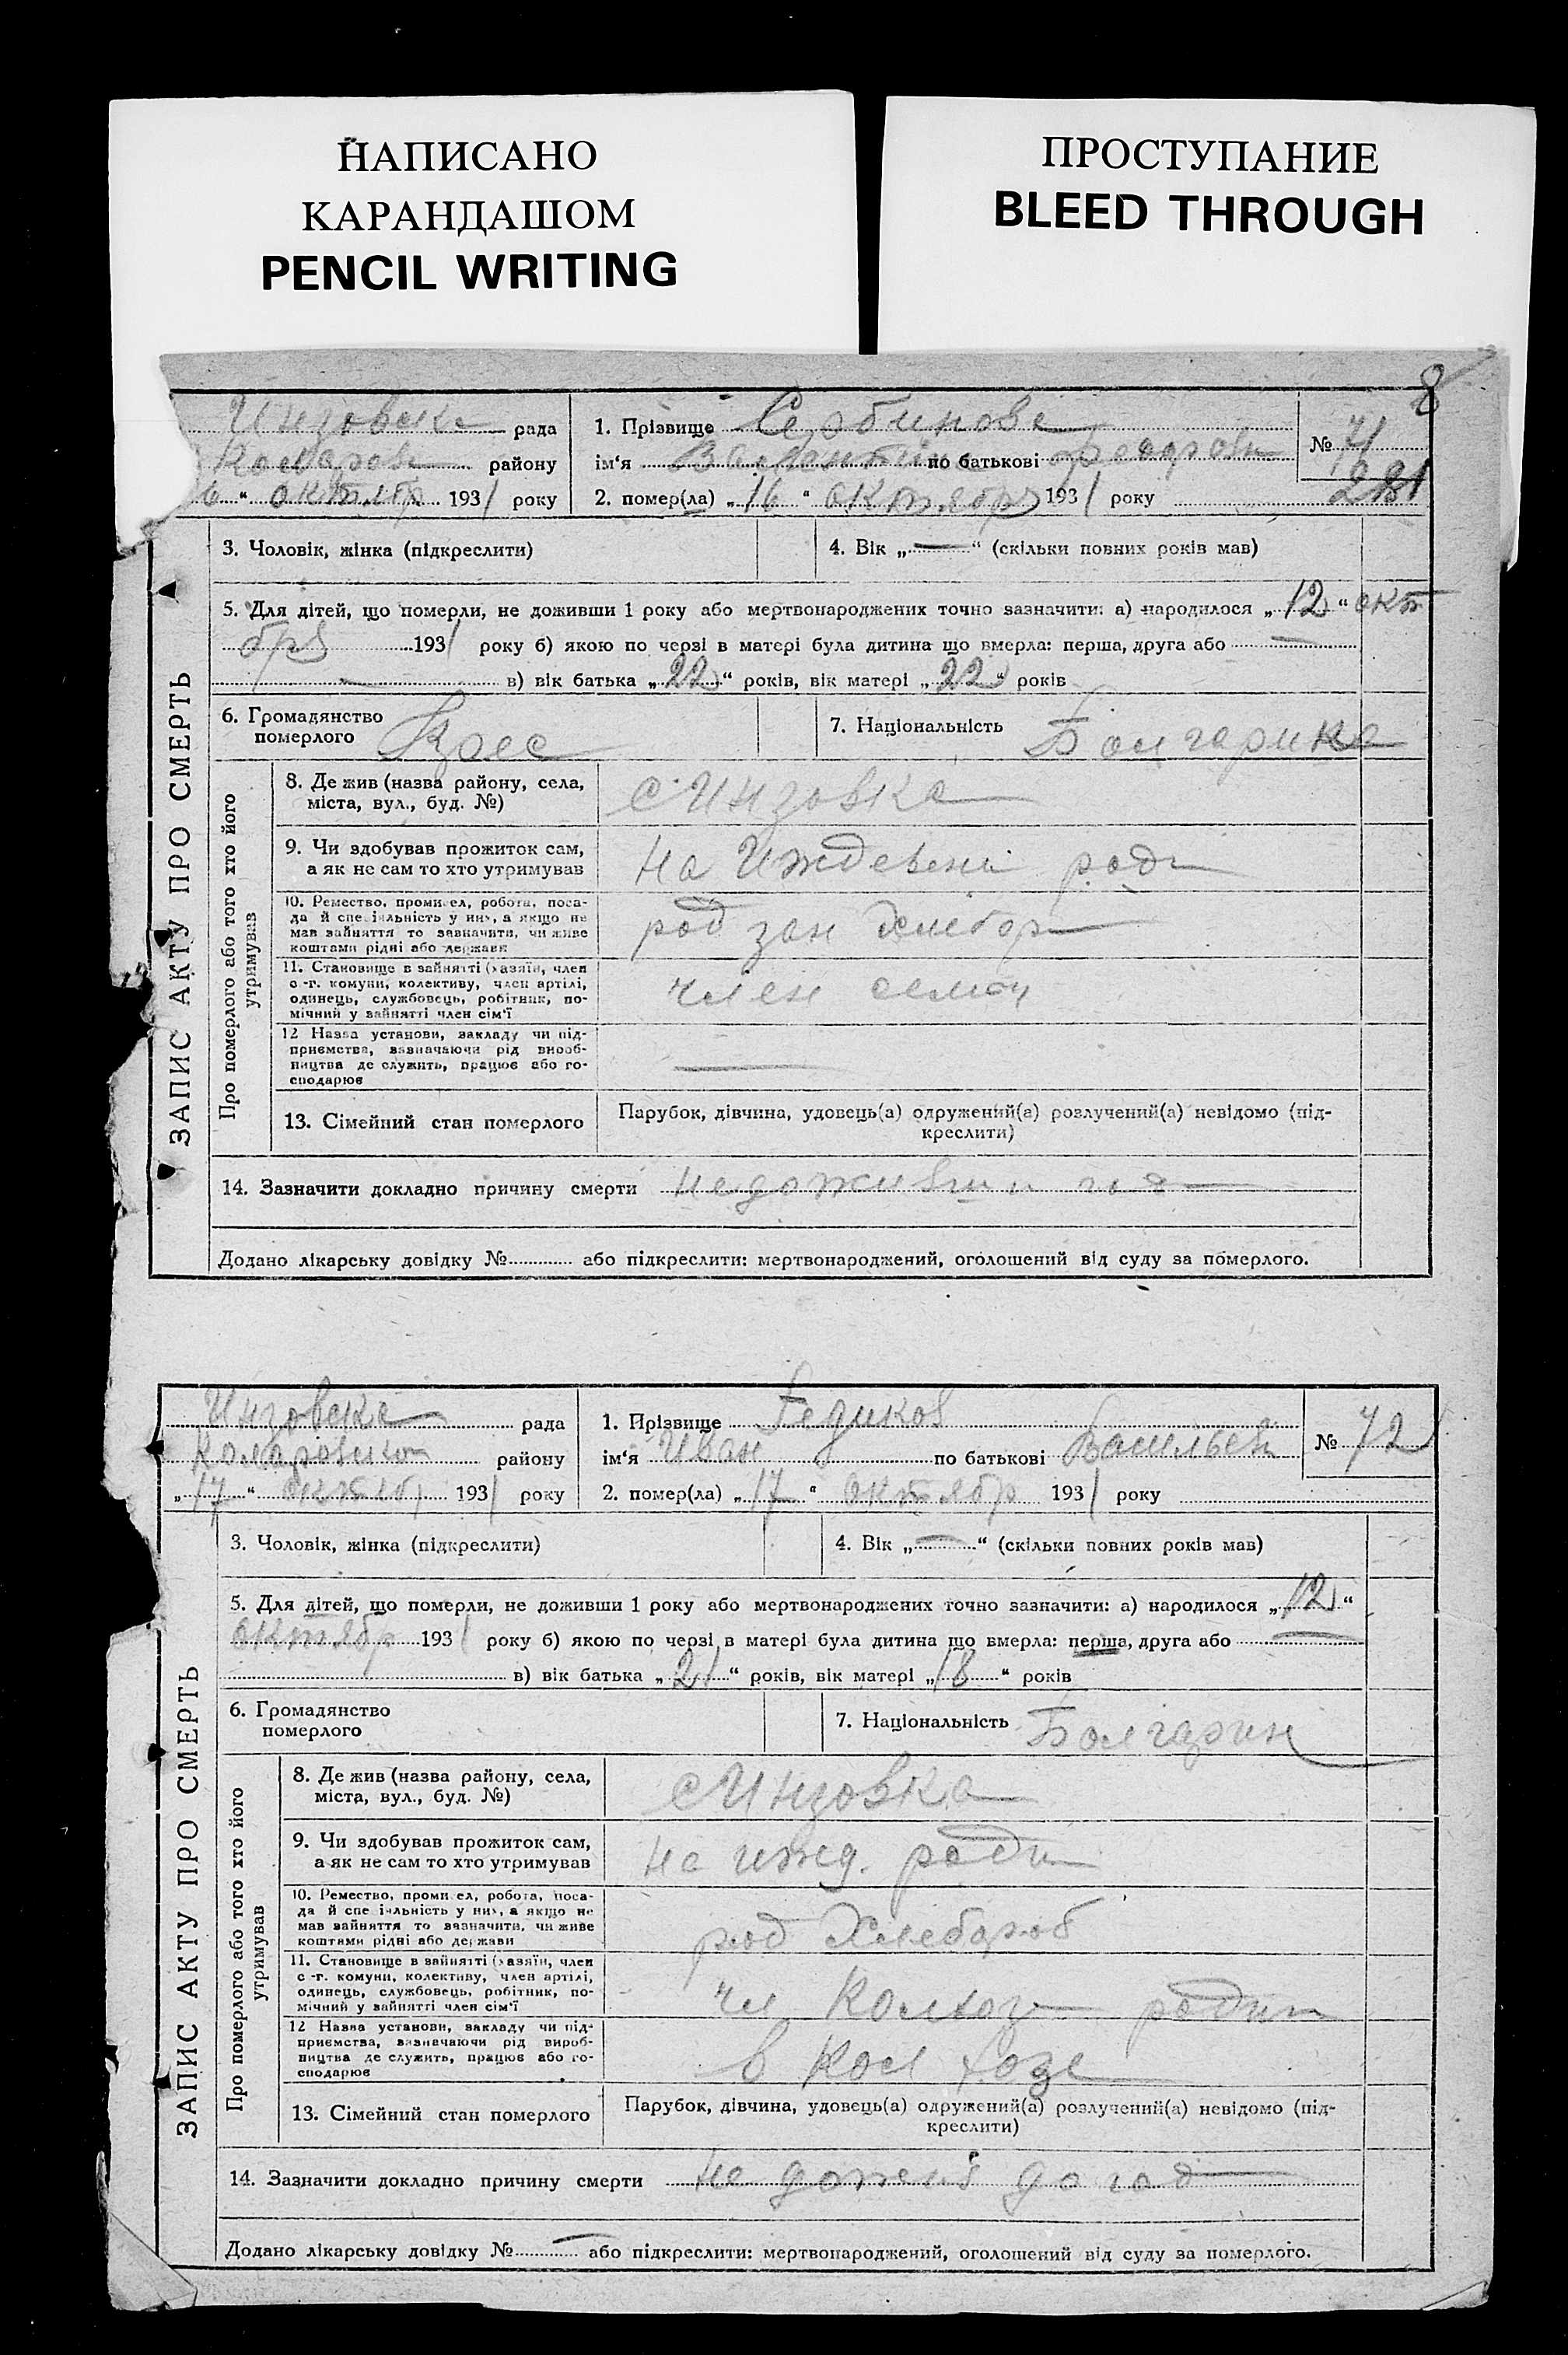 НАПИСАНО
КАРАНДАШОМ
PENCIL WRITING
ПРОСТУПАНИЕ
BLEED THROUGH
8
Инзовска рада
1. Прізвище Сербинова
№ 71
району
ім'я Валентина по батькові
16 “ октябр 1931 року
2. помер(ла) „ 16 “ октября 1931 року
3. Чоловік, жінка (підкреслити)
4. Вік „ — “ (скільки повних років мав)
5. Для дітей, що померли, не доживши 1 року або мертвонароджених точно зазначити: а) народилося „ 12 “ окт
ября 1931 року б) якою по черзі в матері була дитина що вмерла: перша, друга або —
— в) вік батька „ 22 “ років, вік матері „ 22 “ років
6. Громадянство
померлого
7. Національність Болгарика
ЗАПИС АКТУ ПРО СМЕРТЬ
Про померлого або того хто його
утримував
8. Де жив (назва району, села,
міста, вул., буд. №)
с Инзовка
9. Чи здобував прожиток сам,
а як не сам то хто утримував
на Иждевени роди
10. Ремество, промисел, робота, поса-
да й спеціяльність у них, а якщо не
мав зайняття то зазначити, чи живе
коштами рідні або держави
род зан Хлебор
11. Становище в зайнятті (хазяїн, член
с.-г. комуни, колективу, член артілі,
одинець, службовець, робітник, по-
мічний у зайнятті член сім'ї
член семьи
12 Назва установи, закладу чи під-
приємства, зазначаючи рід вироб-
ництва де служить, працює або го-
сподарює
—
13. Сімейний стан померлого
Парубок, дівчина, удовець(а) одружений(а) розлучений(а) невідомо (під-
креслити)
14. Зазначити докладно причину смерти недоживши
Додано лікарську довідку № або підкреслити: мертвонароджений, оголошений від суду за померлого.
Инзовска рада
1. Прізвище Гедиков
№ 72
району
ім'я Иван по батькові Василье
„ 17 “ октябр 1931 року
2. помер(ла) „ 17 “ октябр 1931 року
3. Чоловік, жінка (підкреслити)
4. Вік „ — “ (скільки повних років мав)
5. Для дітей, що померли, не доживши 1 року або мертвонароджених точно зазначити: а) народилося „ 12 “
октябр 1931 року б) якою по черзі в матері була дитина що вмерла: перша, друга або —
в) вік батька „ 21 “ років, вік матері „ 18 “ років
6. Громадянство
померлого
7. Національність Болгарин
ЗАПИС АКТУ ПРО СМЕРТЬ
Про померлого або того хто його
утримував
8. Де жив (назва району, села,
міста, вул., буд. №)
с Инзовка
9. Чи здобував прожиток сам,
а як не сам то хто утримував
на ижд. роди
10. Ремество, промисел, робота, поса-
да й спеціяльність у них, а якщо не
мав зайняття то зазначити, чи живе
коштами рідні або держави
род Хлебороб
11. Становище в зайнятті (хазяїн, член
с.-г. комуни, колективу, член артілі,
одинець, службовець, робітник, по-
мічний у зайнятті член сім'ї
чл Колхоз родит
12 Назва установи, закладу чи під-
приємства, зазначаючи рід вироб-
ництва де служить, працює або го-
сподарює
в Кол хозе
13. Сімейний стан померлого
Парубок, дівчина, удовець(а) одружений(а) розлучений(а) невідомо (під-
креслити)
14. Зазначити докладно причину смерти не дожив до год
Додано лікарську довідку № — або підкреслити: мертвонароджений, оголошений від суду за померлого.